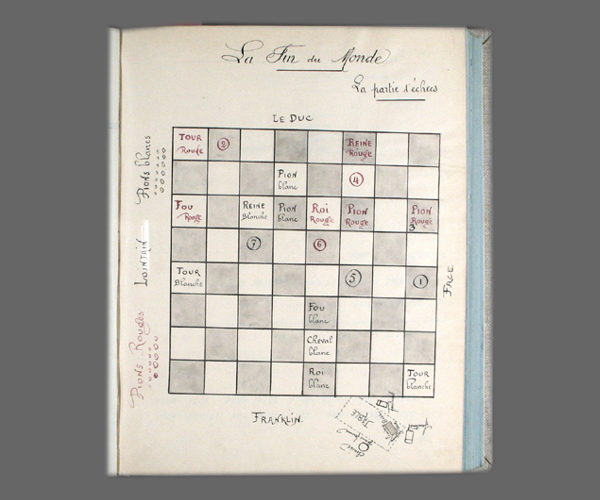 La Fin du Monde
La partie d'échecs
LE DUC
TOUR
Rouge
2
REINE
Rouge
PION
blanc
4
FOU
Rouge
REINE
Blanche
PION
blanc
ROI
ROUGE
PION
ROUGE
PION
ROUGE
3
7
6
TOUR
Blanche
5
1
FOU
blanc
Cheval
blanc
ROI
blanc
TOUR
blanche
FRANKLIN.
Pions blancs
LOINTAIN
Pions Rouges
FACE
TABLE